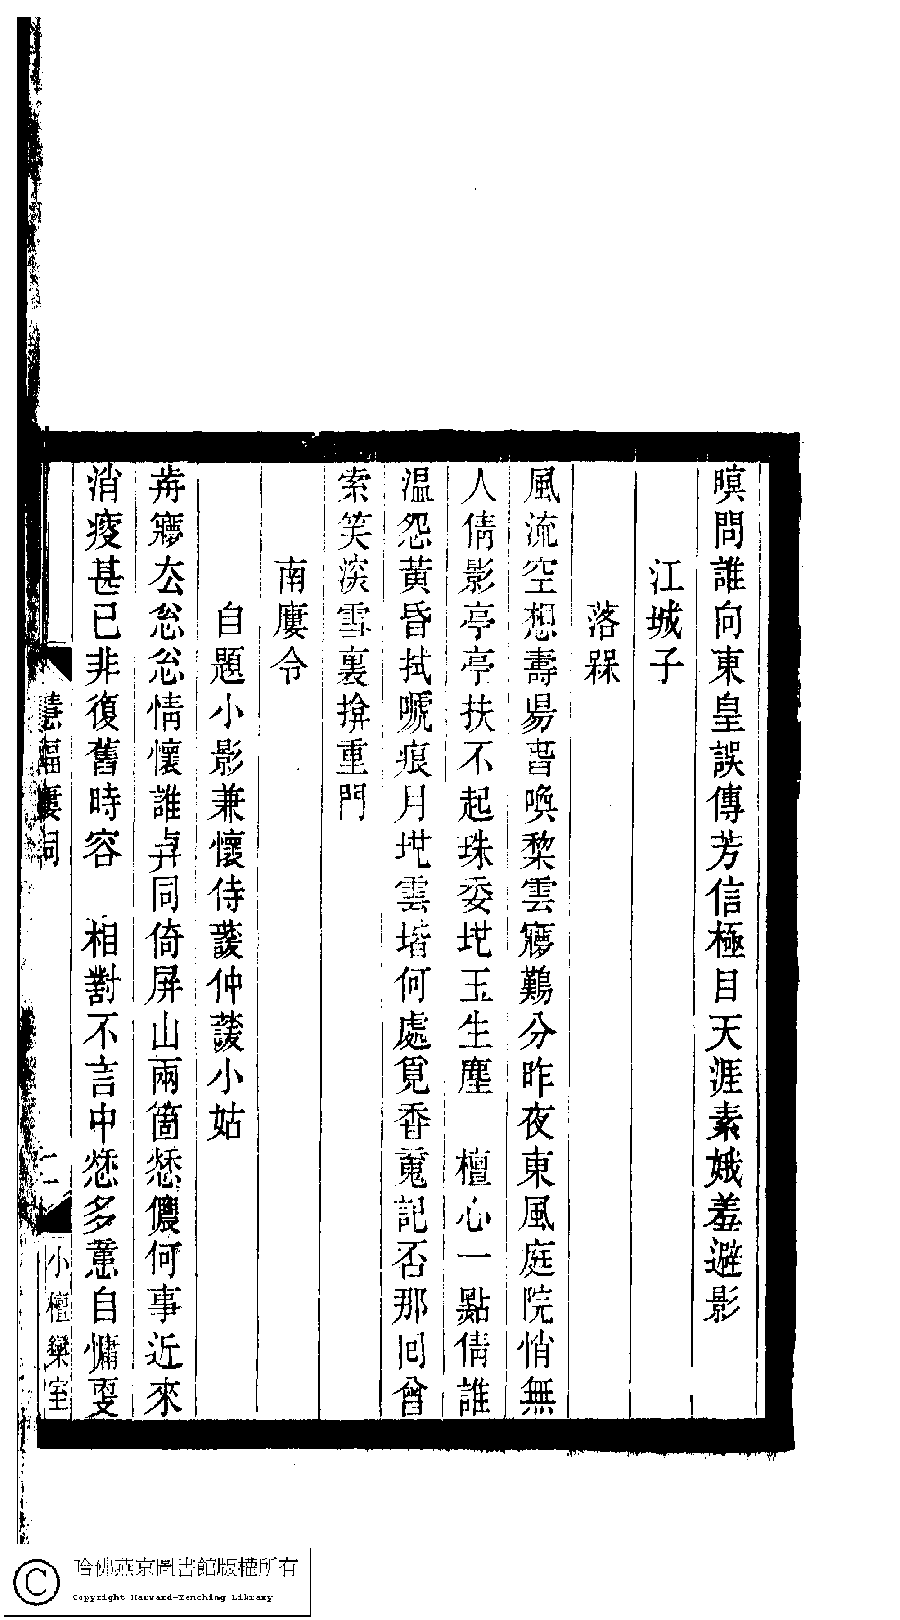 暝問誰向東皇誤傳芳信極目天涯素娥羞避影
江城子
落槑
風流空想壽昜𣆀喚棃雲㝱鷄分昨夜東風庭院悄無
人倩影亭亭扶不起珠委墬玉生塵　檀心一點倩誰
溫怨黃昏拭嗁痕月墬雲堦何處覓香䰟記否那回曾
索笑淡雪裏揜重門
南廔令
自題小影兼懷侍䕶仲䕶小姑
歬㝱厺怱怱情懷誰與同倚屏山兩箇愁儂何事近來
消瘦甚已非復舊時容　相對不言中愁多意自慵
慧福廔詞
二
小檀欒室
哈佛燕京圖書館版權所有
Copyright Harvard-Yenching Library